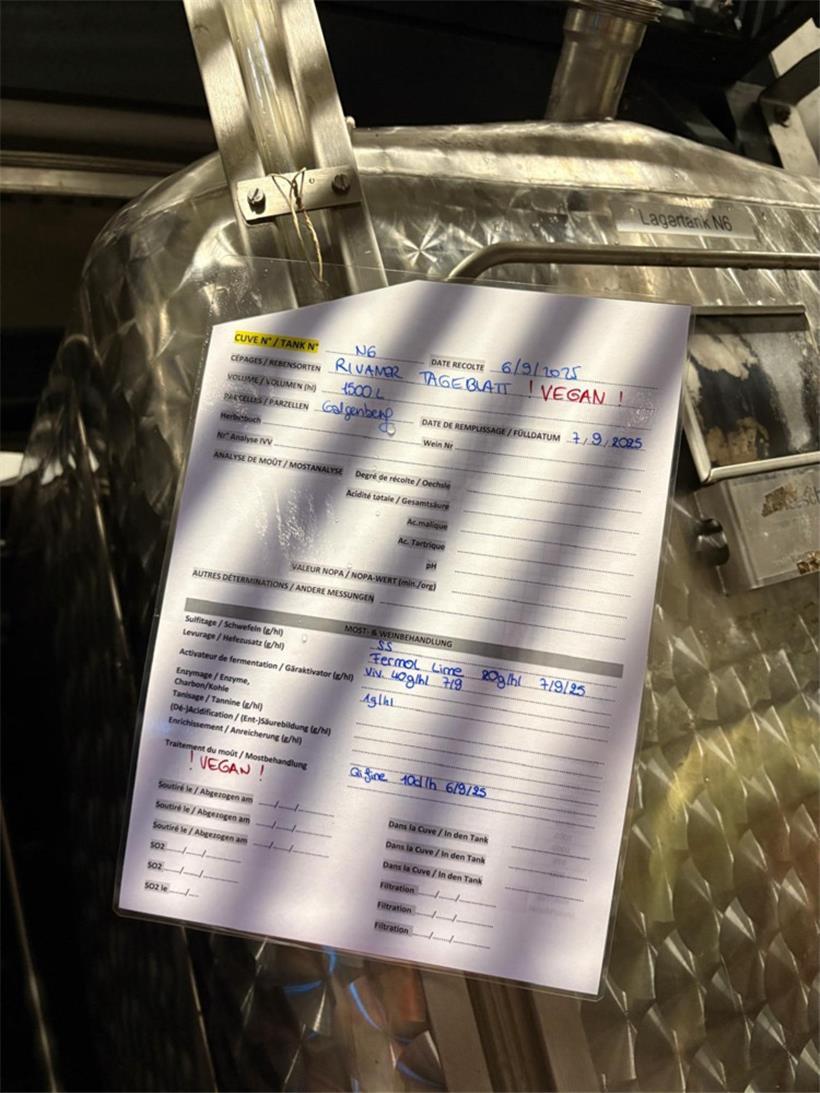 Lagertank N6
CUVE N° / TANK N° N6 DATE RECOLTE 6/9/2025
CÉPAGES / REBENSORTEN RIVANER TAGEBLATT ! VEGAN !
VOLUME / VOLUMEN (hl) 1500 L
PARCELLES / PARZELLEN Galgenberg DATE DE REMPLISSAGE / FÜLLDATUM 7/9/2025
Herbstbuch Wein Nr
Nr° Analyse IVV
ANALYSE DE MOÛT / MOSTANALYSE Degré de récolte / Oechsle
Acidité totale / Gesamtsäure
Ac.malique
Ac. Tartrique
pH
VALEUR NOPA / NOPA-WERT (min./org)
AUTRES DÉTERMINATIONS / ANDERE MESSUNGEN
MOST- & WEINBEHANDLUNG
Sulfitage / Schwefeln (g/hl) SS
Levurage / Hefezusatz (g/hl) Fermol Lime 20g/hl 7/9/25
Activateur de fermentation / Gäraktivator (g/hl) Viv. 40g/hl 7/9
Enzymage / Enzyme, 1g/hl
Charbon/Kohle
Tanisage / Tannine (g/hl)
(Dé-)Acidification / (Ent-)Säurebildung (g/hl)
Enrichissement / Anreicherung (g/hl)
Traitement du moût / Mostbehandlung
! VEGAN ! 6/9/25
Soutiré le / Abgezogen am __/__/__ Dans la Cuve / In den Tank
Soutiré le / Abgezogen am __/__/__ Dans la Cuve / In den Tank
Soutiré le / Abgezogen am __/__/__ Dans la Cuve / In den Tank
SO2 __/__/__ Filtration __/__/__
SO2 __/__/__ Filtration __/__/__
SO2 le __/__/__ Filtration __/__/__